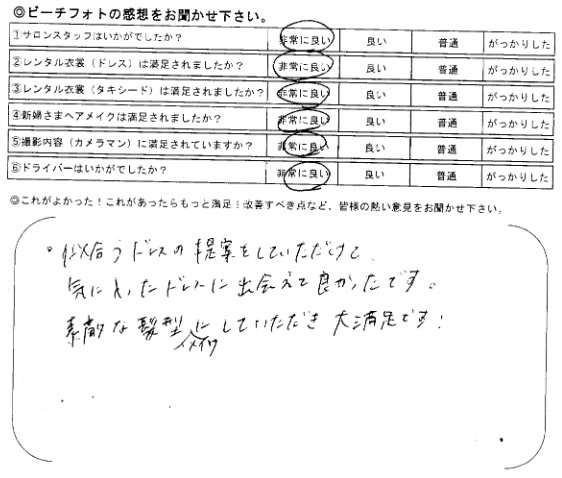 ◎ビーチフォトの感想をお聞かせ下さい。
①サロンスタッフはいかがでしたか? 非常に良い 良い 普通 がっかりした
②レンタル衣裳(ドレス)は満足されましたか? 非常に良い 良い 普通 がっかりした
③レンタル衣裳(タキシード)は満足されましたか? 非常に良い 良い 普通 がっかりした
④新婦さまヘアメイクは満足されましたか? 非常に良い 良い 普通 がっかりした
⑤撮影内容(カメラマン)に満足されていますか? 非常に良い 良い 普通 がっかりした
⑥ドライバーはいかがでしたか? 非常に良い 良い 普通 がっかりした
◎これがよかった!これがあったらもっと満足!改善すべき点など、皆様の熱い意見をお聞かせ下さい。
・似合うドレスの提案をしていただけて、
気に入ったドレスに出会えて良かったです。
素敵な髪型にしていただき大満足です!
メイク